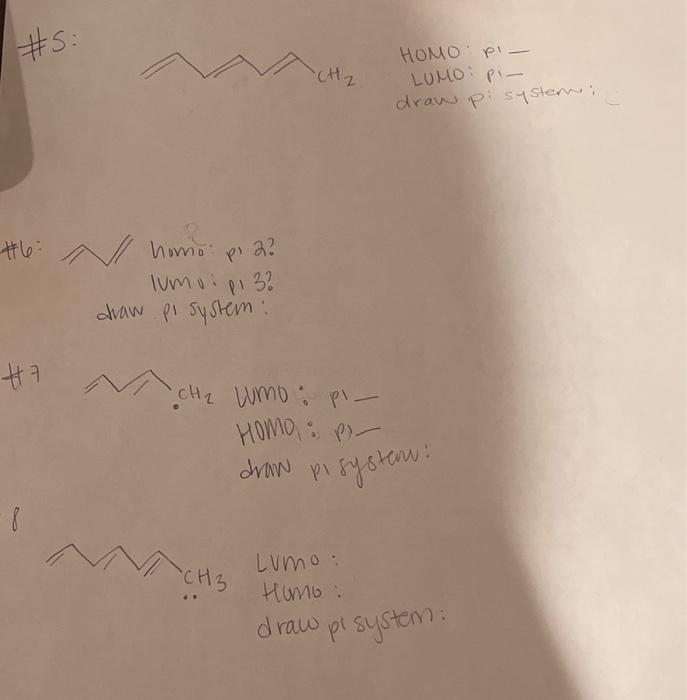 #5:
CH2
HOMO: pi —
LUMO: pi —
draw pi system:
#6:
homo: pi 2?
lumo: pi 3?
draw pi system:
#7
·CH2
LUMO: pi —
HOMO: pi —
draw pi system:
8
CH3
··
LUMO:
Homo:
draw pi system: